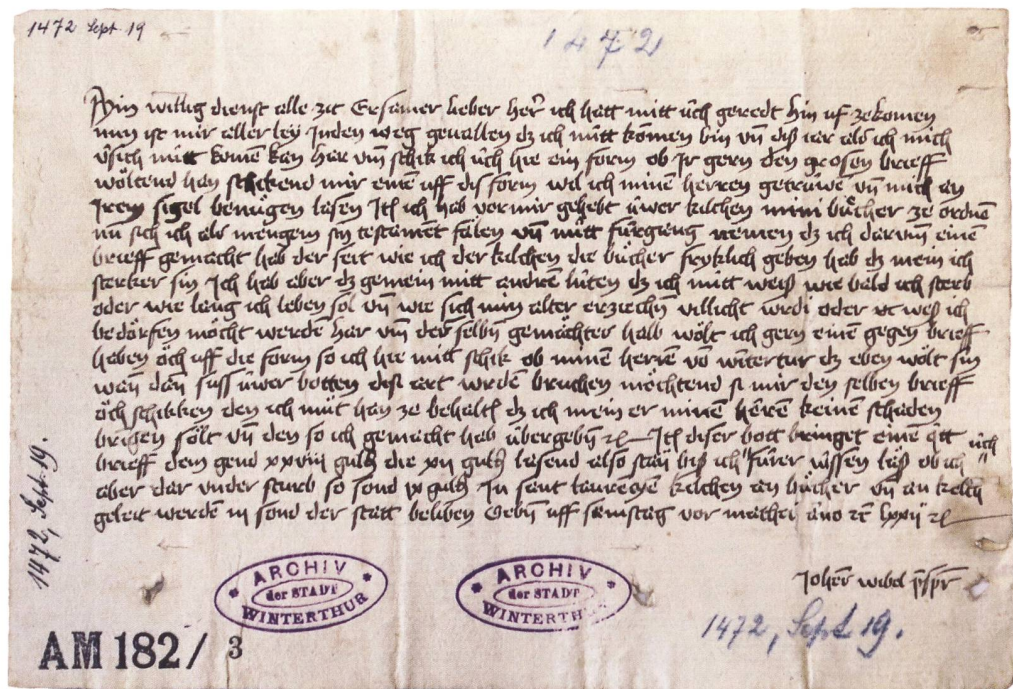 1472 Sept. 19
1472
Min willig dienst alle zit Ersamer lieber her ich hatt mitt üch geredt hin uf zekomen
nun ist mir aller ley Inden weg gevallen dz ich nütt komen bin vnd diß iar als ich mich
versich nütt komen kan har vm schik ich üch hie ein form ob Ir gern den grosen brieff
wöltend han schikend mir einen uff dis form wil ich minen herren getrüwe vnd mich an
Irem sigel benügen lasen Itm ich hab vor mir gehebt üwer kilchen mini bücher ze ordnen
nu sich ich als mengem sin testamet fälen vnd nütt fürgang nemen dz ich darum einen
brieff gemacht hab der seit wie ich der kilchen die bücher fryklich geben hab dz mein ich
sterker sin Ich hab aber dz gemein mitt andren lüten dz ich nitt weiß wie bald ich sterb
oder wie lang ich leben sol vnd wie sich min alter erziechen villicht wirdi oder vc weß ich
bedärfen möcht werde har vm der selben gemächten halb wölt ich gern einen gegen brieff
haben öch uff die form so ich hie mitt schik ob minen herren vo wintertur dz eben wölt sin
wan dan suss üwer botten disi art wrden bruchen möchtend si mir den selben brieff
öch schikken den ich müt han ze behalten dz ich mein er minen heren keinen schaden
bringen sölt vnd den so ich gemacht hab übergeben etc Itm diser bott bringet einen qtt
brieff dem gend xxviii guldin die xii guldin lasend also stan biß ich üch fürer wissen laß ob ich
aber dar vnder sturb so sond ix guldin In sant laurencyen kilchen an bücher vnd an kelch
geleit werden iii sond der statt beliben Geben uff samstag vor mathei ano etc lxxii etc
Johes wibel pspr
1472, Sept. 19.
ARCHIV
der STADT
WINTERTHUR
ARCHIV
der STADT
WINTERTHUR
1472, Sept 19.
AM 182/3